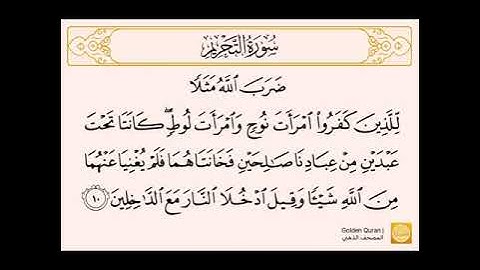 سُورَةُ التَّحْرِيمِ
ضَرَبَ ٱللَّهُ مَثَلًا
لِّلَّذِينَ كَفَرُوا۟ ٱمْرَأَتَ نُوحٍ وَٱمْرَأَتَ لُوطٍ ۖ كَانَتَا تَحْتَ
عَبْدَيْنِ مِنْ عِبَادِنَا صَـٰلِحَيْنِ فَخَانَتَاهُمَا فَلَمْ يُغْنِيَا عَنْهُمَا
مِنَ ٱللَّهِ شَيْـًٔا وَقِيلَ ٱدْخُلَا ٱلنَّارَ مَعَ ٱلدَّٰخِلِينَ ١٠
Golden Quran |
المصحف الذهبي